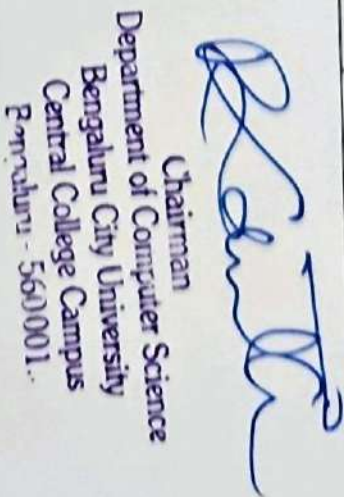 Chairman
Department of Computer Science
Bengaluru City University
Central College Campus
Bengaluru - 560001..